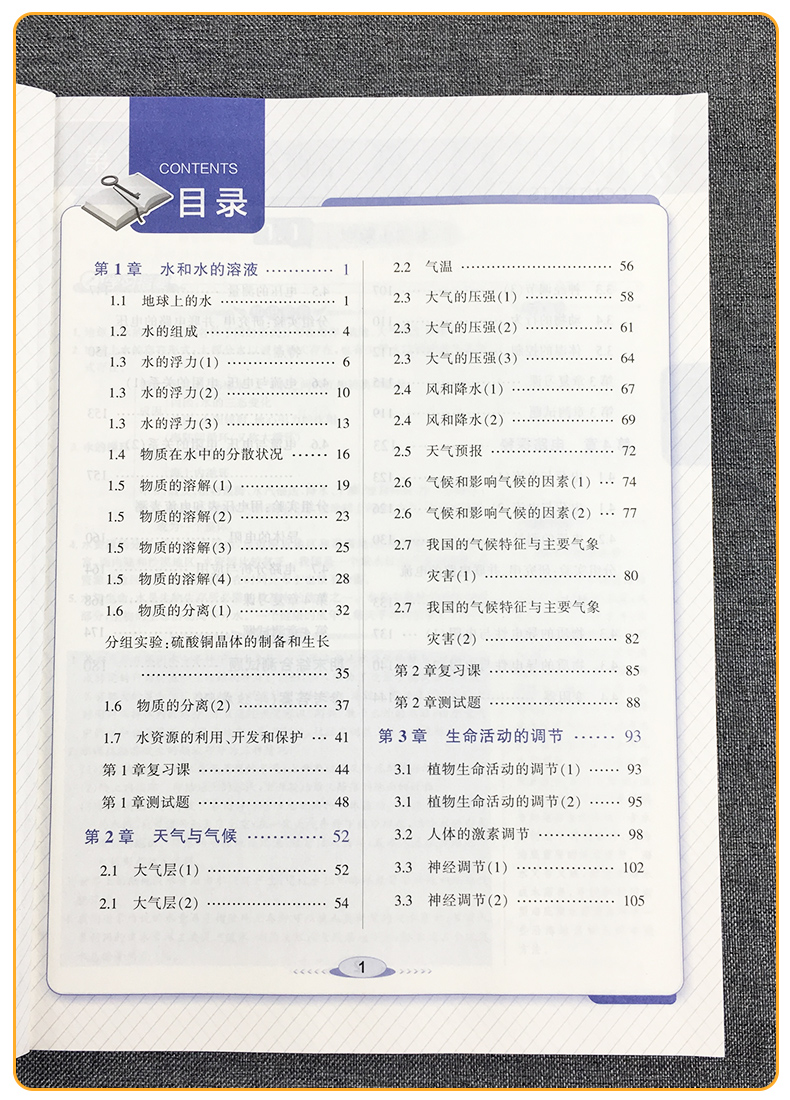 CONTENTS
目录
第1章 水和水的溶液 ………… 1
1.1 地球上的水 ………… 1
1.2 水的组成 ………… 4
1.3 水的浮力(1) ………… 6
1.3 水的浮力(2) ………… 10
1.3 水的浮力(3) ………… 13
1.4 物质在水中的分散状况 …… 16
1.5 物质的溶解(1) ………… 19
1.5 物质的溶解(2) ………… 23
1.5 物质的溶解(3) ………… 25
1.5 物质的溶解(4) ………… 28
1.6 物质的分离(1) ………… 32
分组实验:硫酸铜晶体的制备和生长
………… 35
1.6 物质的分离(2) ………… 37
1.7 水资源的利用、开发和保护 … 41
第1章复习课 ………… 44
第1章测试题 ………… 48
第2章 天气与气候 ………… 52
2.1 大气层(1) ………… 52
2.1 大气层(2) ………… 54
2.2 气温 ………… 56
2.3 大气的压强(1) ………… 58
2.3 大气的压强(2) ………… 61
2.3 大气的压强(3) ………… 64
2.4 风和降水(1) ………… 67
2.4 风和降水(2) ………… 69
2.5 天气预报 ………… 72
2.6 气候和影响气候的因素(1) … 74
2.6 气候和影响气候的因素(2) … 77
2.7 我国的气候特征与主要气象
灾害(1) ………… 80
2.7 我国的气候特征与主要气象
灾害(2) ………… 82
第2章复习课 ………… 85
第2章测试题 ………… 88
第3章 生命活动的调节 …… 93
3.1 植物生命活动的调节(1) …… 93
3.1 植物生命活动的调节(2) …… 95
3.2 人体的激素调节 ………… 98
3.3 神经调节(1) ………… 102
3.3 神经调节(2) ………… 105
1